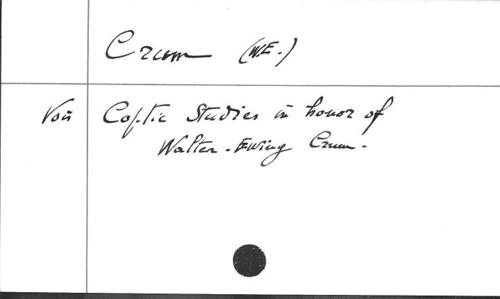 Crum (W.E.)
Voir Coptic Studies in honor of
Walter-Ewing Crum.